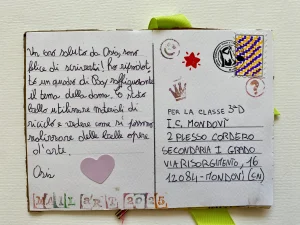 Un caro saluto da Asia, sono
felice di scriverti! Ho riprodot-
to un quadro di Bay raffigurante
il tema della donna. È stato
bello utilizzare materiali di
riciclo e vedere come si possano
realizzare delle belle opere
d'arte.
Asia
MAIL ART 2025
PER LA CLASSE 3^D
I.C. MONDOVÌ
2 PLESSO CORDERO
SECONDARIA I GRADO
VIA RISORGIMENTO, 16
12084-MONDOVÌ (CN)